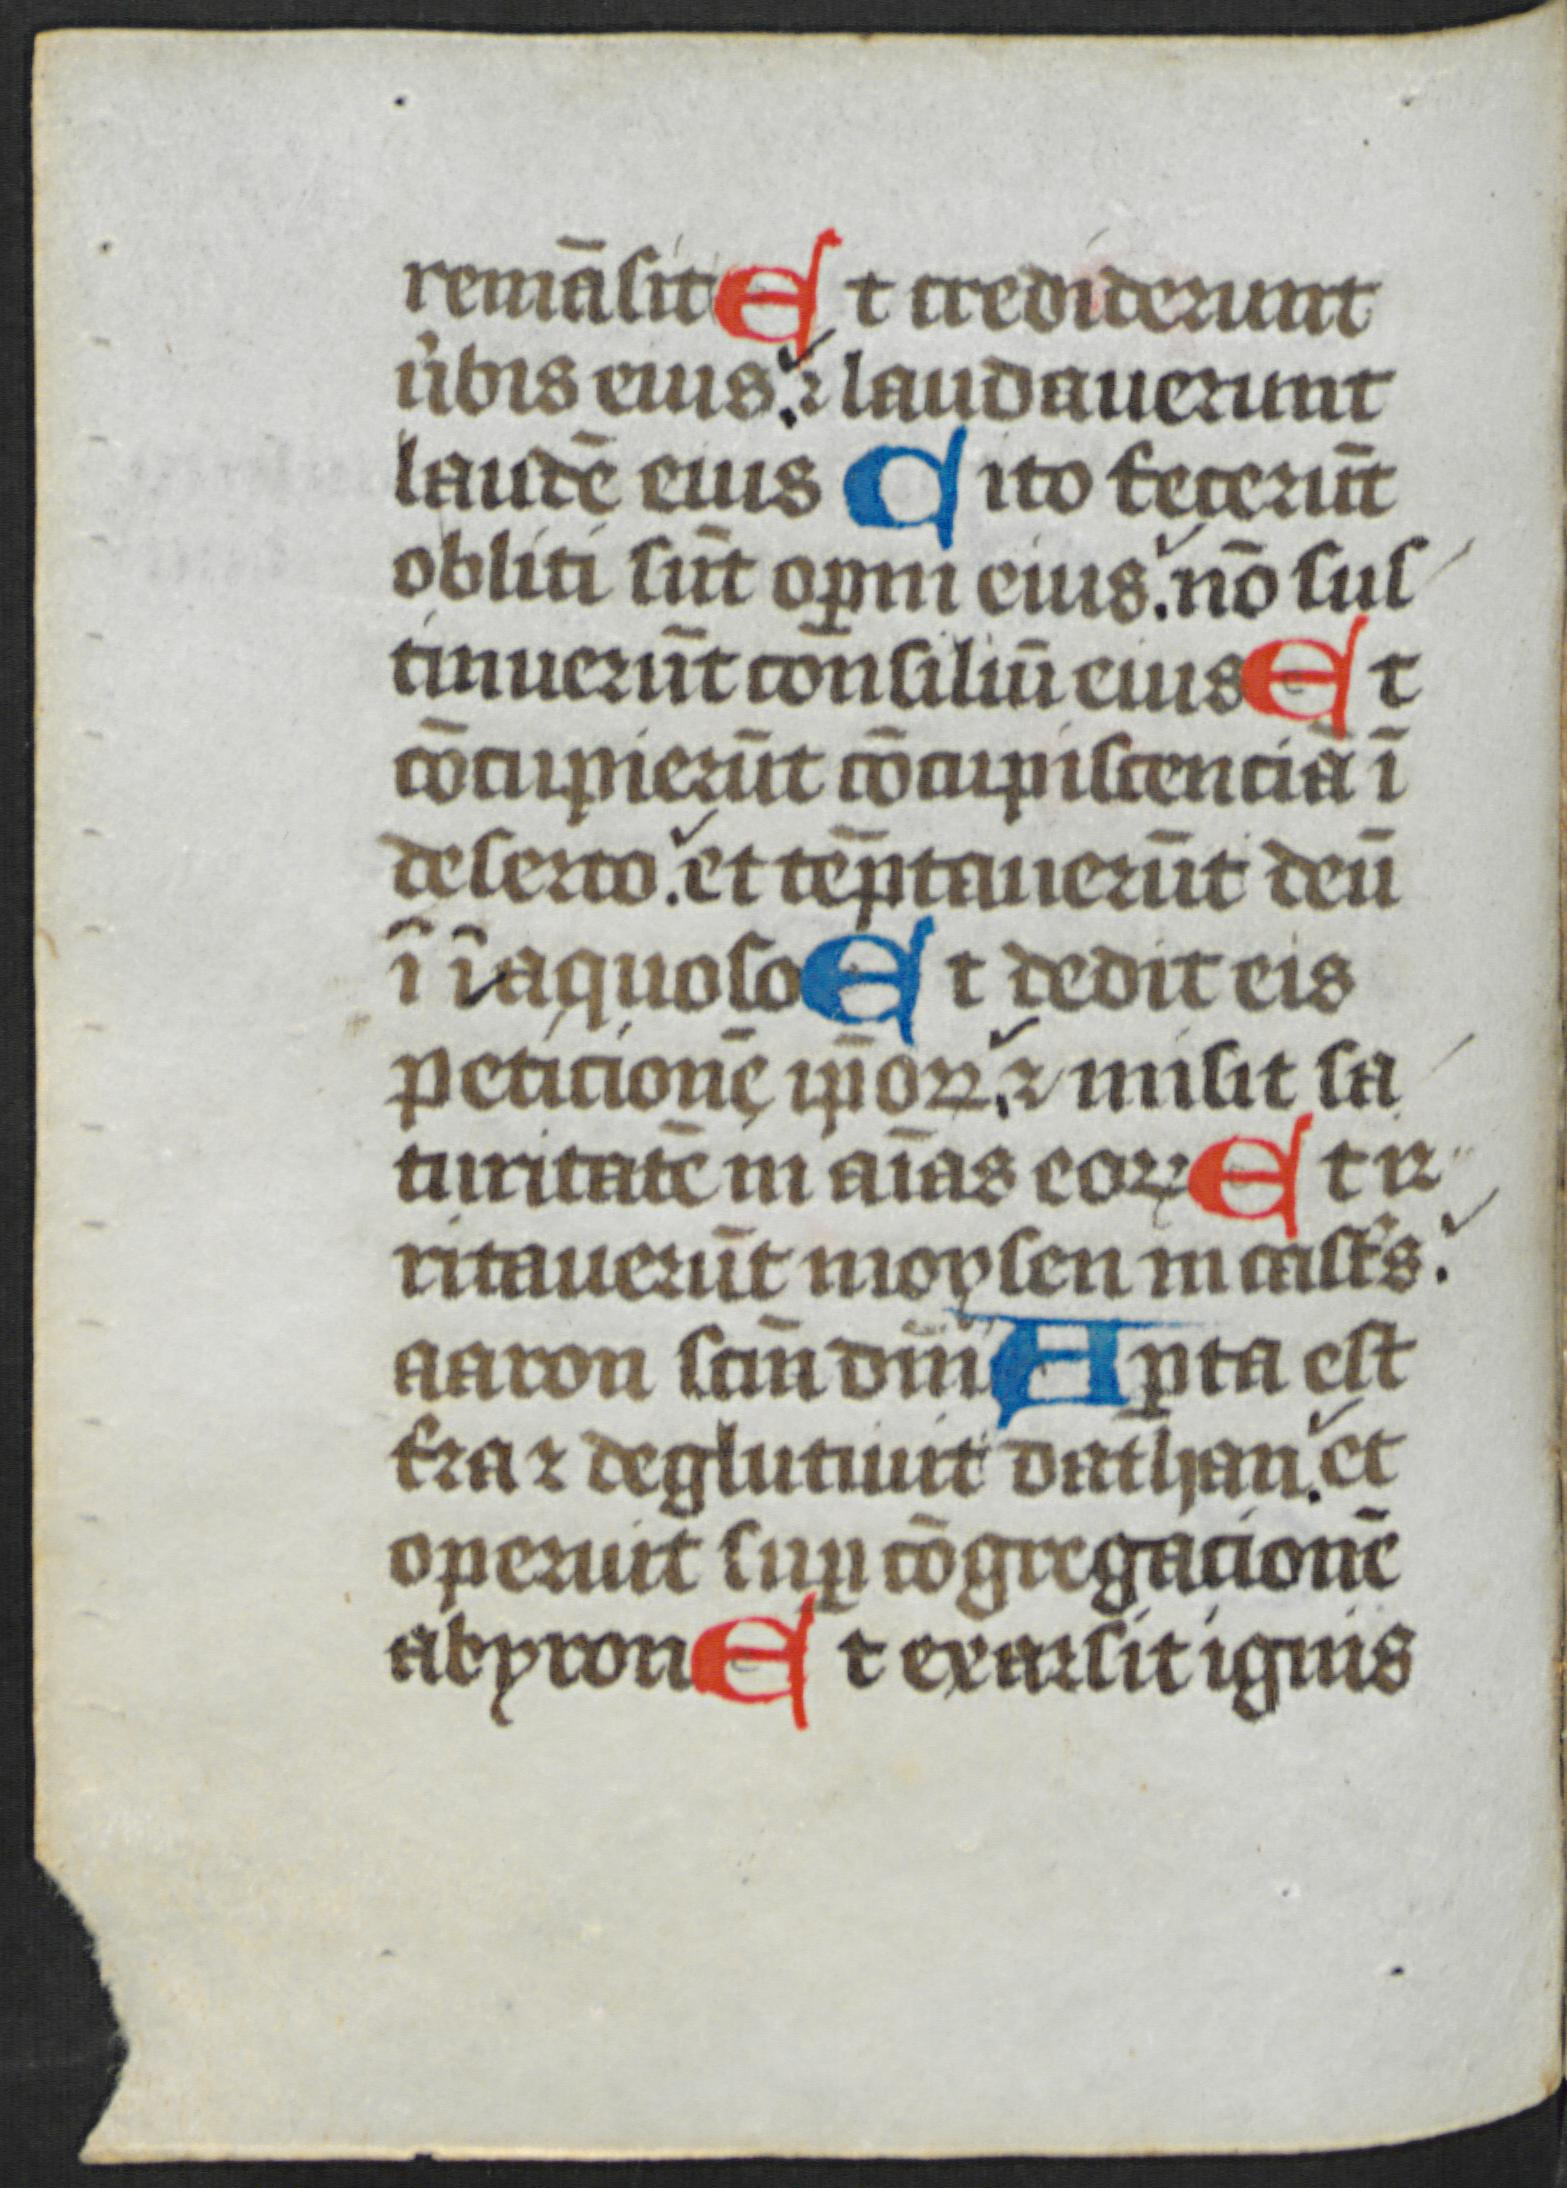 remāsit Et crediderunt
v̉bis eius. ⁊ laudauerunt
laudē eius Cito fecerūt
obliti sūt oꝑm eius. nō sus
tinuerūt cōnsiliū eius Et
cōcupierūt cōcupiscenciā ī
deserto. et tēptauerūt deū
ī īaquoso Et dedit eis
peticionē ip̄oꝝ. ⁊ misit sa
turitatē in aīas eoꝝ Et ir
ritauerūt moysen in cast̉s.
aaron scm̄ dm̄i Aꝑta est
t̉ra ⁊ deglutiuit dathan. et
operuit suꝑ cōgregacionē
abyron Et exarsit ignis